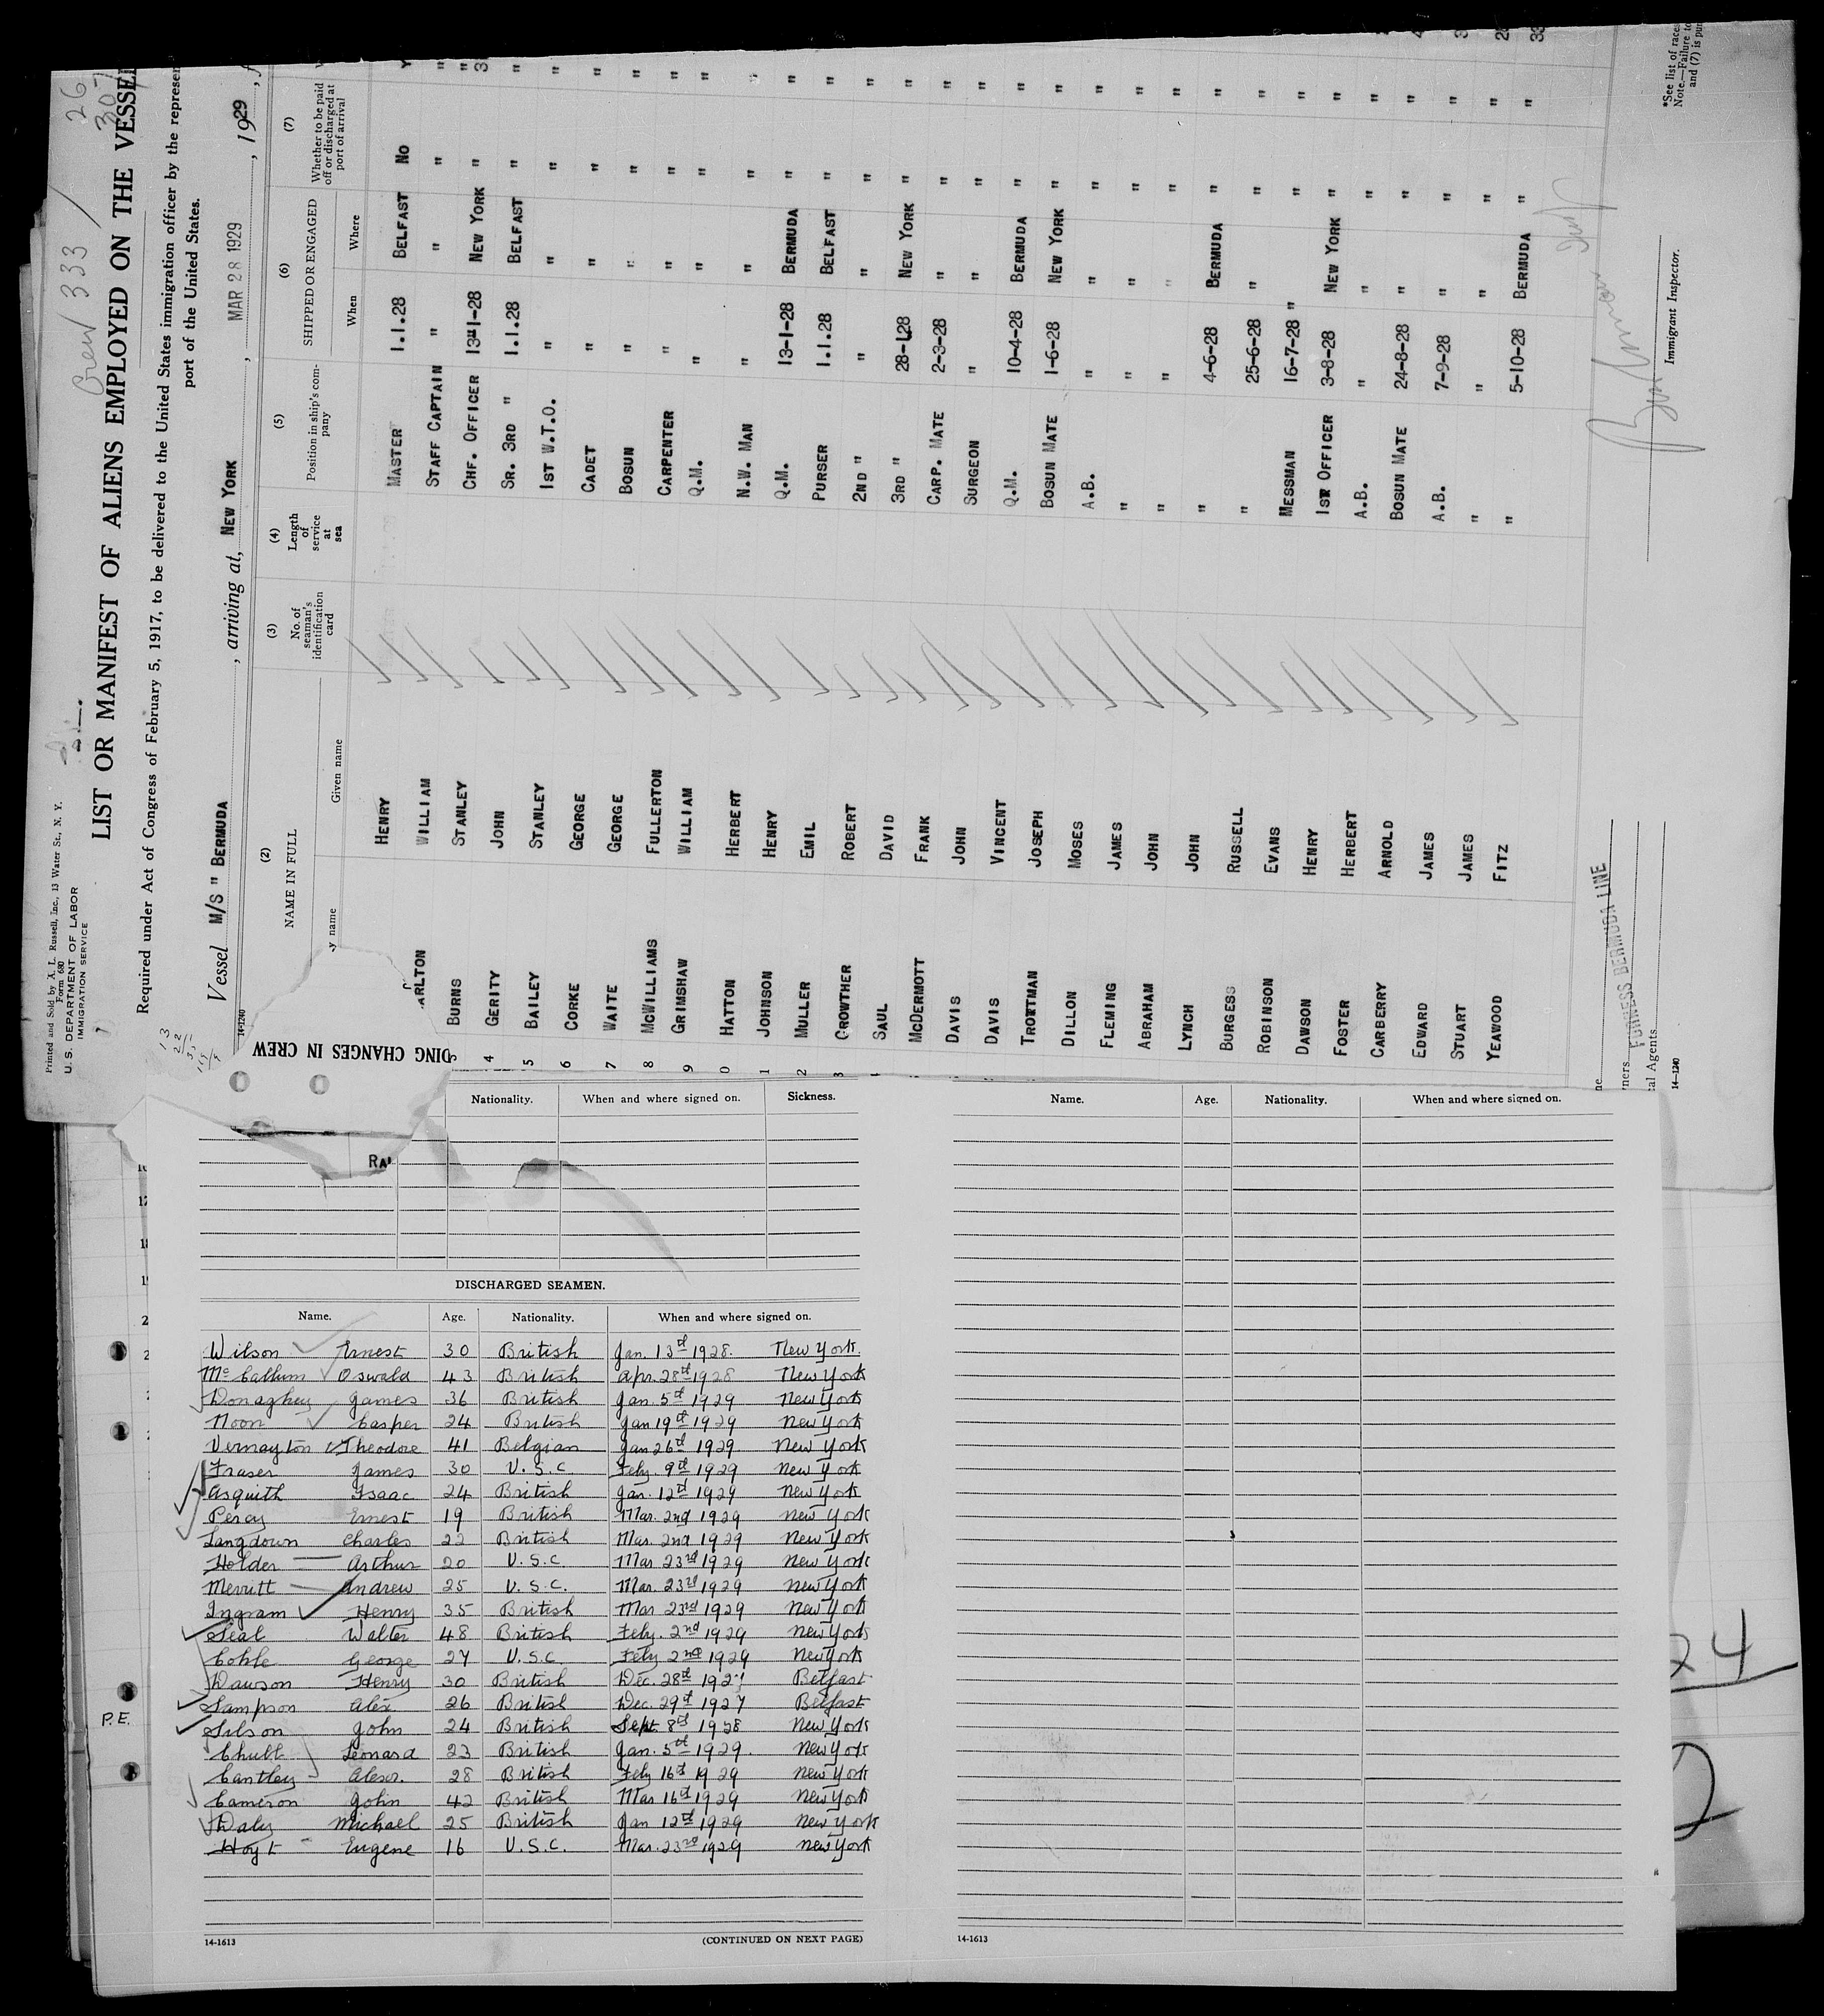 Printed and Sold by A. L. Russell, Inc., 13 Water St., N. Y.
Form 680
U. S. DEPARTMENT OF LABOR
IMMIGRATION SERVICE
Crew 333 / 26
307
LIST OR MANIFEST OF ALIENS EMPLOYED ON THE VESSEL
Required under Act of Congress of February 5, 1917, to be delivered to the United States immigration officer by the represen
port of the United States.
Vessel M/S " BERMUDA , arriving at, NEW YORK , MAR 28 1929 , 1929 , f
14-1240
(2) (3) (4) (5) (6) (7)
NAME IN FULL No. of seaman's identification card Length of service at sea Position in ship's company SHIPPED OR ENGAGED Whether to be paid off or discharged at port of arrival
y name Given name When Where
HENRY MASTER 1.1.28 BELFAST No Y
ARLTON WILLIAM STAFF CAPTAIN " " " "
3 BURNS STANLEY CHF. OFFICER 13-1-28 NEW YORK " "
4 GERITY JOHN SR. 3RD " 1.1.28 BELFAST " "
5 BAILEY STANLEY 1ST W.T.O. " " " "
6 CORKE GEORGE CADET " " " "
7 WAITE GEORGE BOSUN " " " "
8 MCWILLIAMS FULLERTON CARPENTER " " " "
9 GRIMSHAW WILLIAM Q.M. " " " "
0 HATTON HERBERT N.W. MAN " " " "
1 JOHNSON HENRY Q.M. 13-1-28 BERMUDA " "
2 MULLER EMIL PURSER 1.1.28 BELFAST " "
3 CROWTHER ROBERT 2ND " " " " "
SAUL DAVID 3RD " 28-1-28 NEW YORK " "
MCDERMOTT FRANK CARP. MATE 2-3-28 " " "
DAVIS JOHN SURGEON " " " "
DAVIS VINCENT Q.M. 10-4-28 BERMUDA " "
TROTTMAN JOSEPH BOSUN MATE 1-6-28 NEW YORK " "
DILLON MOSES A.B. " " " "
FLEMING JAMES " " " " "
ABRAHAM JOHN " " " " "
LYNCH JOHN " 4-6-28 BERMUDA " "
BURGESS RUSSELL " 25-6-28 " " "
ROBINSON EVANS MESSMAN 16-7-28 " " "
DAWSON HENRY 1ST OFFICER 3-8-28 NEW YORK " "
FOSTER HERBERT A.B. " " " "
CARBERRY ARNOLD BOSUN MATE 24-8-28 " " "
EDWARD JAMES A.B. 7-9-28 " " "
STUART JAMES " " " " "
YEAWOOD FITZ " 5-10-28 BERMUDA " "
FURNESS BERMUDA LINE
ners
al Agents
14-1240
Immigrant Inspector.
*See list of races
Note.—Failure to
and (7) is pun
DING CHANGES IN CREW
Nationality. When and where signed on. Sickness.
Name. Age. Nationality. When and where signed on.
DISCHARGED SEAMEN.
Name. Age. Nationality. When and where signed on.
Wilson Ernest 30 British Jan. 13th 1928. New York.
McCallum Oswald 43 British Apr. 28th 1928 New York
Donaghey James 36 British Jan. 5th 1929 New York
Noon Casper 24 British Jan 19th 1929 New York
Vernayton Theodore 41 Belgian Jan 26th 1929 New York
Fraser James 30 U.S.C. Feby. 9th 1929 New York
Asquith Isaac 24 British Jan. 12th 1929 New York
Percy Ernest 19 British Mar. 2nd 1929 New York
Langdown Charles 22 British Mar. 2nd 1929 New York
Holder Arthur 20 U.S.C. Mar. 23rd 1929 New York
Merritt Andrew 25 U.S.C. Mar. 23rd 1929 New York
Ingram Henry 35 British Mar 23rd 1929 New York
Seal Walter 48 British Feby. 2nd 1929 New York
Cohle George 27 U.S.C. Feby 2nd 1929 New York
Dawson Henry 30 British Dec. 28th 1927 Belfast
Sampson Alex 26 British Dec. 29th 1927 Belfast
Silson John 24 British Sept 8th 1928 New York
Chubb Leonard 23 British Jan. 5th 1929. New York
Cantley Alexr. 28 British Feby 16th 1929 New York
Cameron John 42 British Mar 16th 1929 New York
Daly Michael 25 British Jan 12th 1929 New York
Hoyt Eugene 16 U.S.C. Mar. 23rd 1929 New York
14-1613 (CONTINUED ON NEXT PAGE)
14-1613
P.E.
24